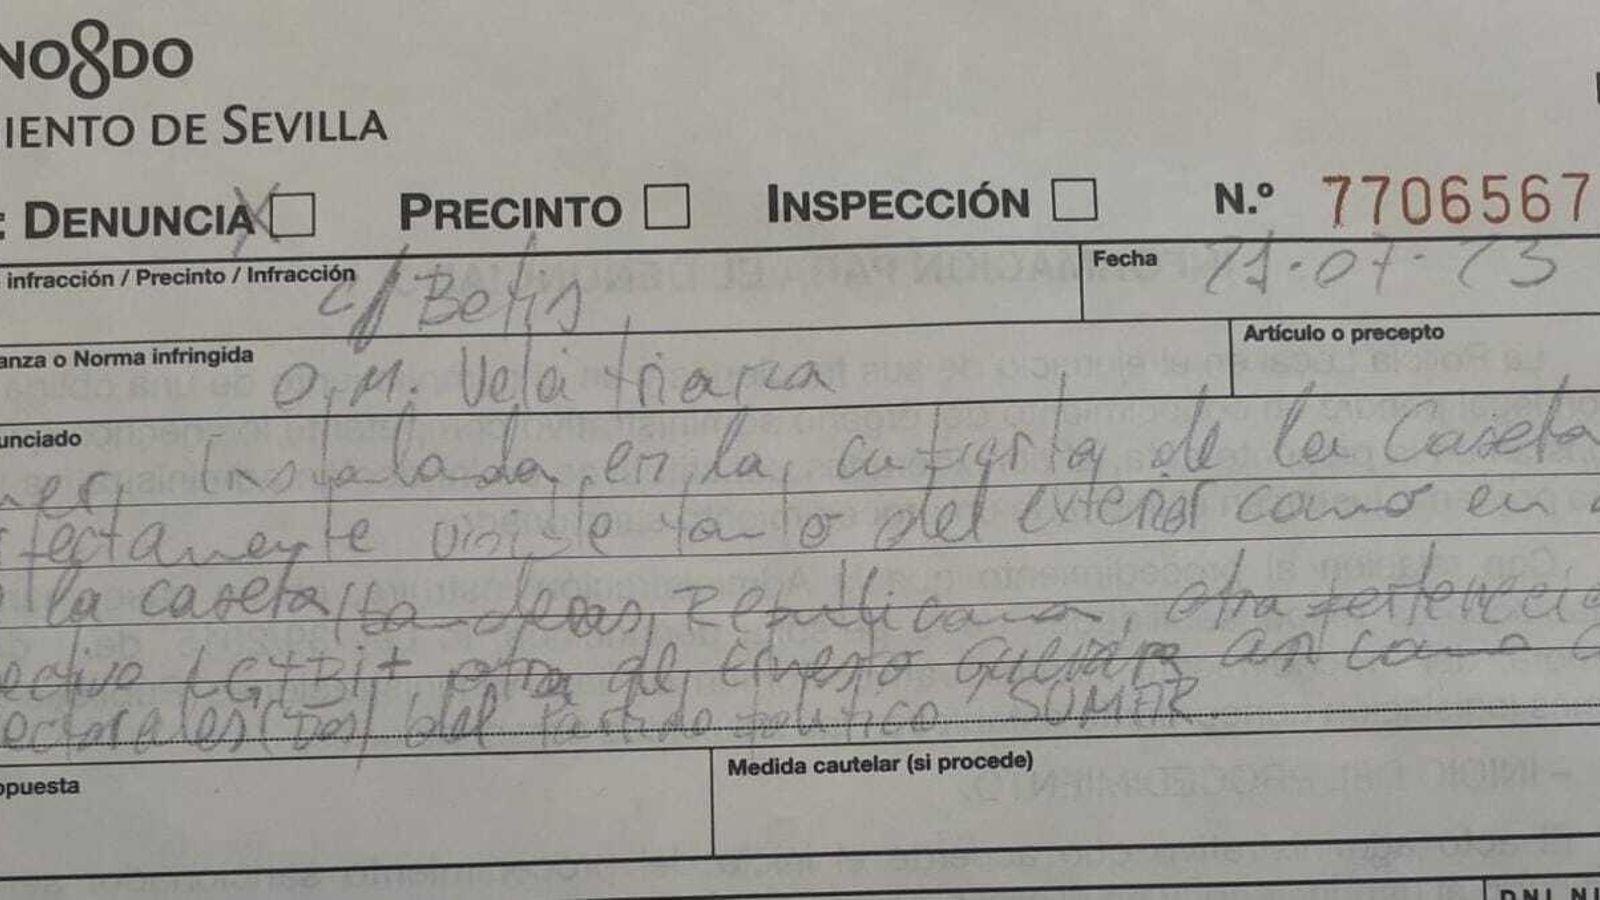 NO8DO
IENTO DE SEVILLA
: DENUNCIA X PRECINTO INSPECCIÓN N.º 7706567
infracción / Precinto / Infracción c/ Betis Fecha 21-07-23
anza o Norma infringida O.M. Velá triana Artículo o precepto
unciado
ner, Instalada, en la, cubierta de la Caseta
fectamente visible tanto del exterior como en
la caseta banderas Republicana, otra pertenecie
ectivo LGTBI+, otra de, Ernesto Guevara así como
ectorales (tres) del Partido político SUMAR.
opuesta Medida cautelar (si procede)
DNI, NI